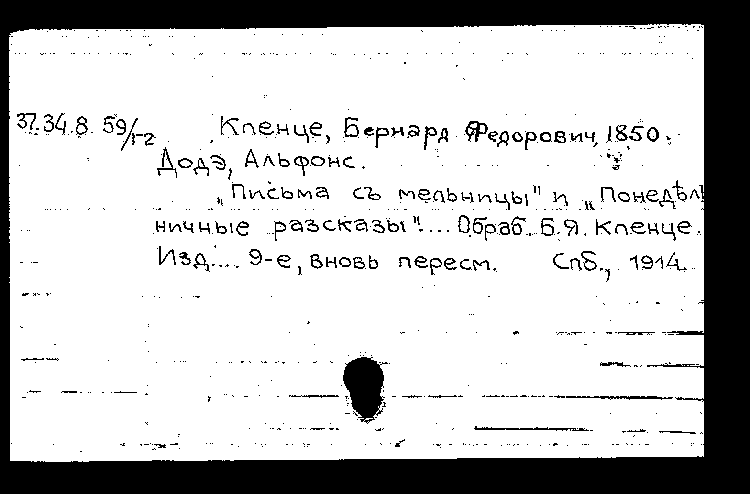 37.34.8.59/1-2 Кленце, Бернард Федорович, 1850.
Додэ, Альфонс.
„Письма съ мельницы" и „Понедѣль
ничные разсказы"!... Обраб. Б.Я. Кленце.
Изд.... 9-е, вновь пересм. Спб., 1914.